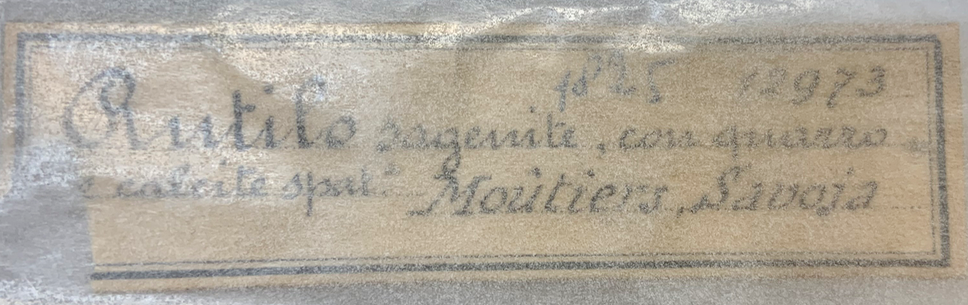 12973
Rutilo sagenite, con quarzo
e calcite spat.ᵃ Moûtiers, Savoja